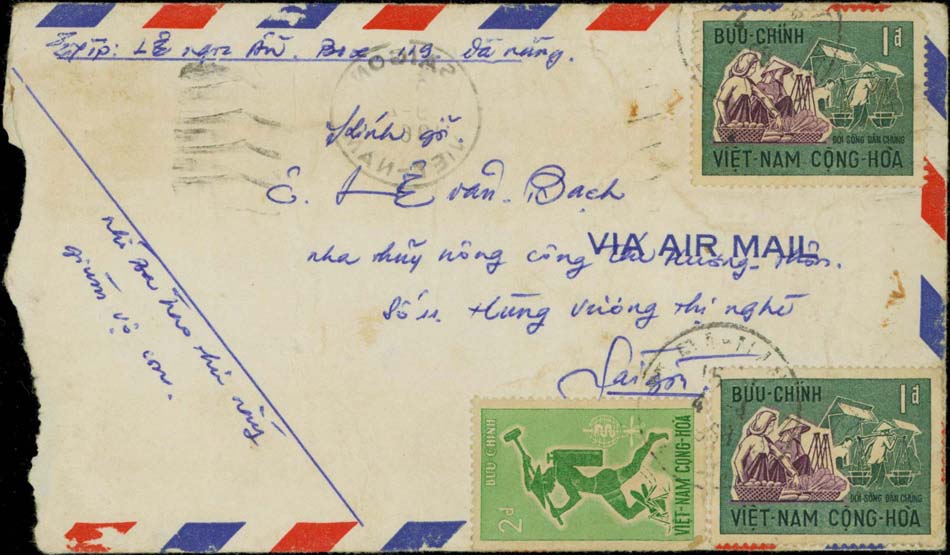 Lê ngọc Ẩn. Box 119 Đà nẵng.
SAIGON
VIET-NAM
Kính gởi.
Ô. LÊ văn Bạch
VIA AIR MAIL
nha thủy nông công
Số 11 Hùng vương thị nghè
Saigon
nhờ tòa
giùm vô con.
BƯU-CHÍNH 1đ
ĐỜI SỐNG DÂN CHÚNG
VIỆT-NAM CỘNG-HÒA
BƯU-CHÍNH
2đ
VIỆT-NAM CỘNG-HÒA
BƯU-CHÍNH 1đ
ĐỜI SỐNG DÂN CHÚNG
VIỆT-NAM CỘNG-HÒA